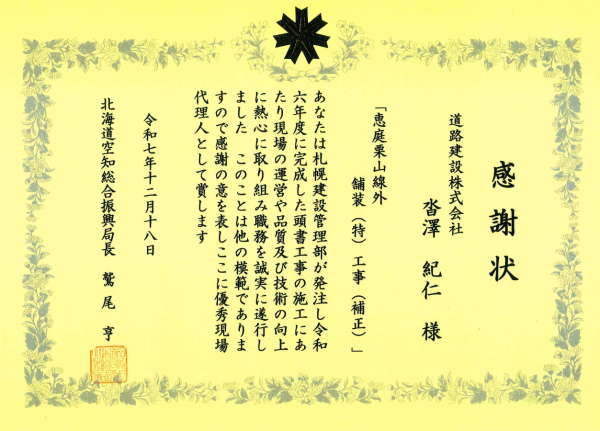 感謝状
道路建設株式会社
沓澤 紀仁 様
「恵庭栗山線外
舗装(特)工事(補正)」
あなたは札幌建設管理部が発注し令和
六年度に完成した頭書工事の施工にあ
たり現場の運営や品質及び技術の向上
に熱心に取り組み職務を誠実に遂行し
ました このことは他の模範でありま
すので感謝の意を表しここに優秀現場
代理人として賞します
令和七年十二月十八日
北海道空知総合振興局長 鷲尾 亨